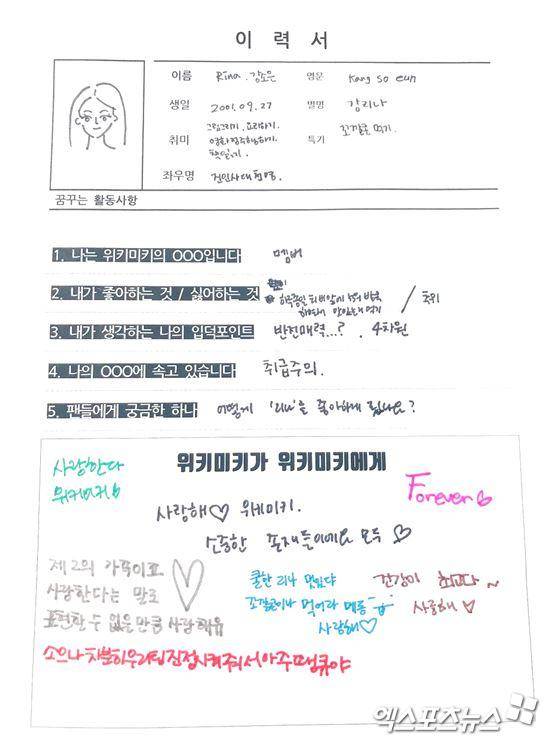 이 력 서
이름 Rina. 강소은 영문 Kang So eun
생일 2001.09.27 별명 강리나
취미 그림그리기, 요리하기, 특기 꼬깔콘 먹기.
영화감상하기,
책읽기.
좌우명 진인사대천명.
꿈꾸는 활동사항
1. 나는 위키미키의 OOO입니다 멤버
2. 내가 좋아하는 것 / 싫어하는 것 하루종일 티비앞에 / 추위
맛있는거 먹기
3. 내가 생각하는 나의 입덕포인트 반전매력...? . 4차원
4. 나의 OOO에 속고 있습니다 취급주의.
5. 팬들에게 궁금한 하나 어떻게 '리나'를 좋아하게 됐나요?
위키미키가 위키미키에게
사랑한다
위키미키
Forever
사랑해♡ 위키미키.
소중한 존재들이에요 모두 ♡
제2의 가족이고
사랑한다는 말로
표현할 수 없을만큼 사랑해유
쿨한 리나 멋있다
꼬깔콘이나 먹어라 메롱
사랑해♡
건강이 최고다~
사랑해♡
소으나 차분히 우리팀 진정시켜줘서 아주 땡큐야
엑스포츠뉴스